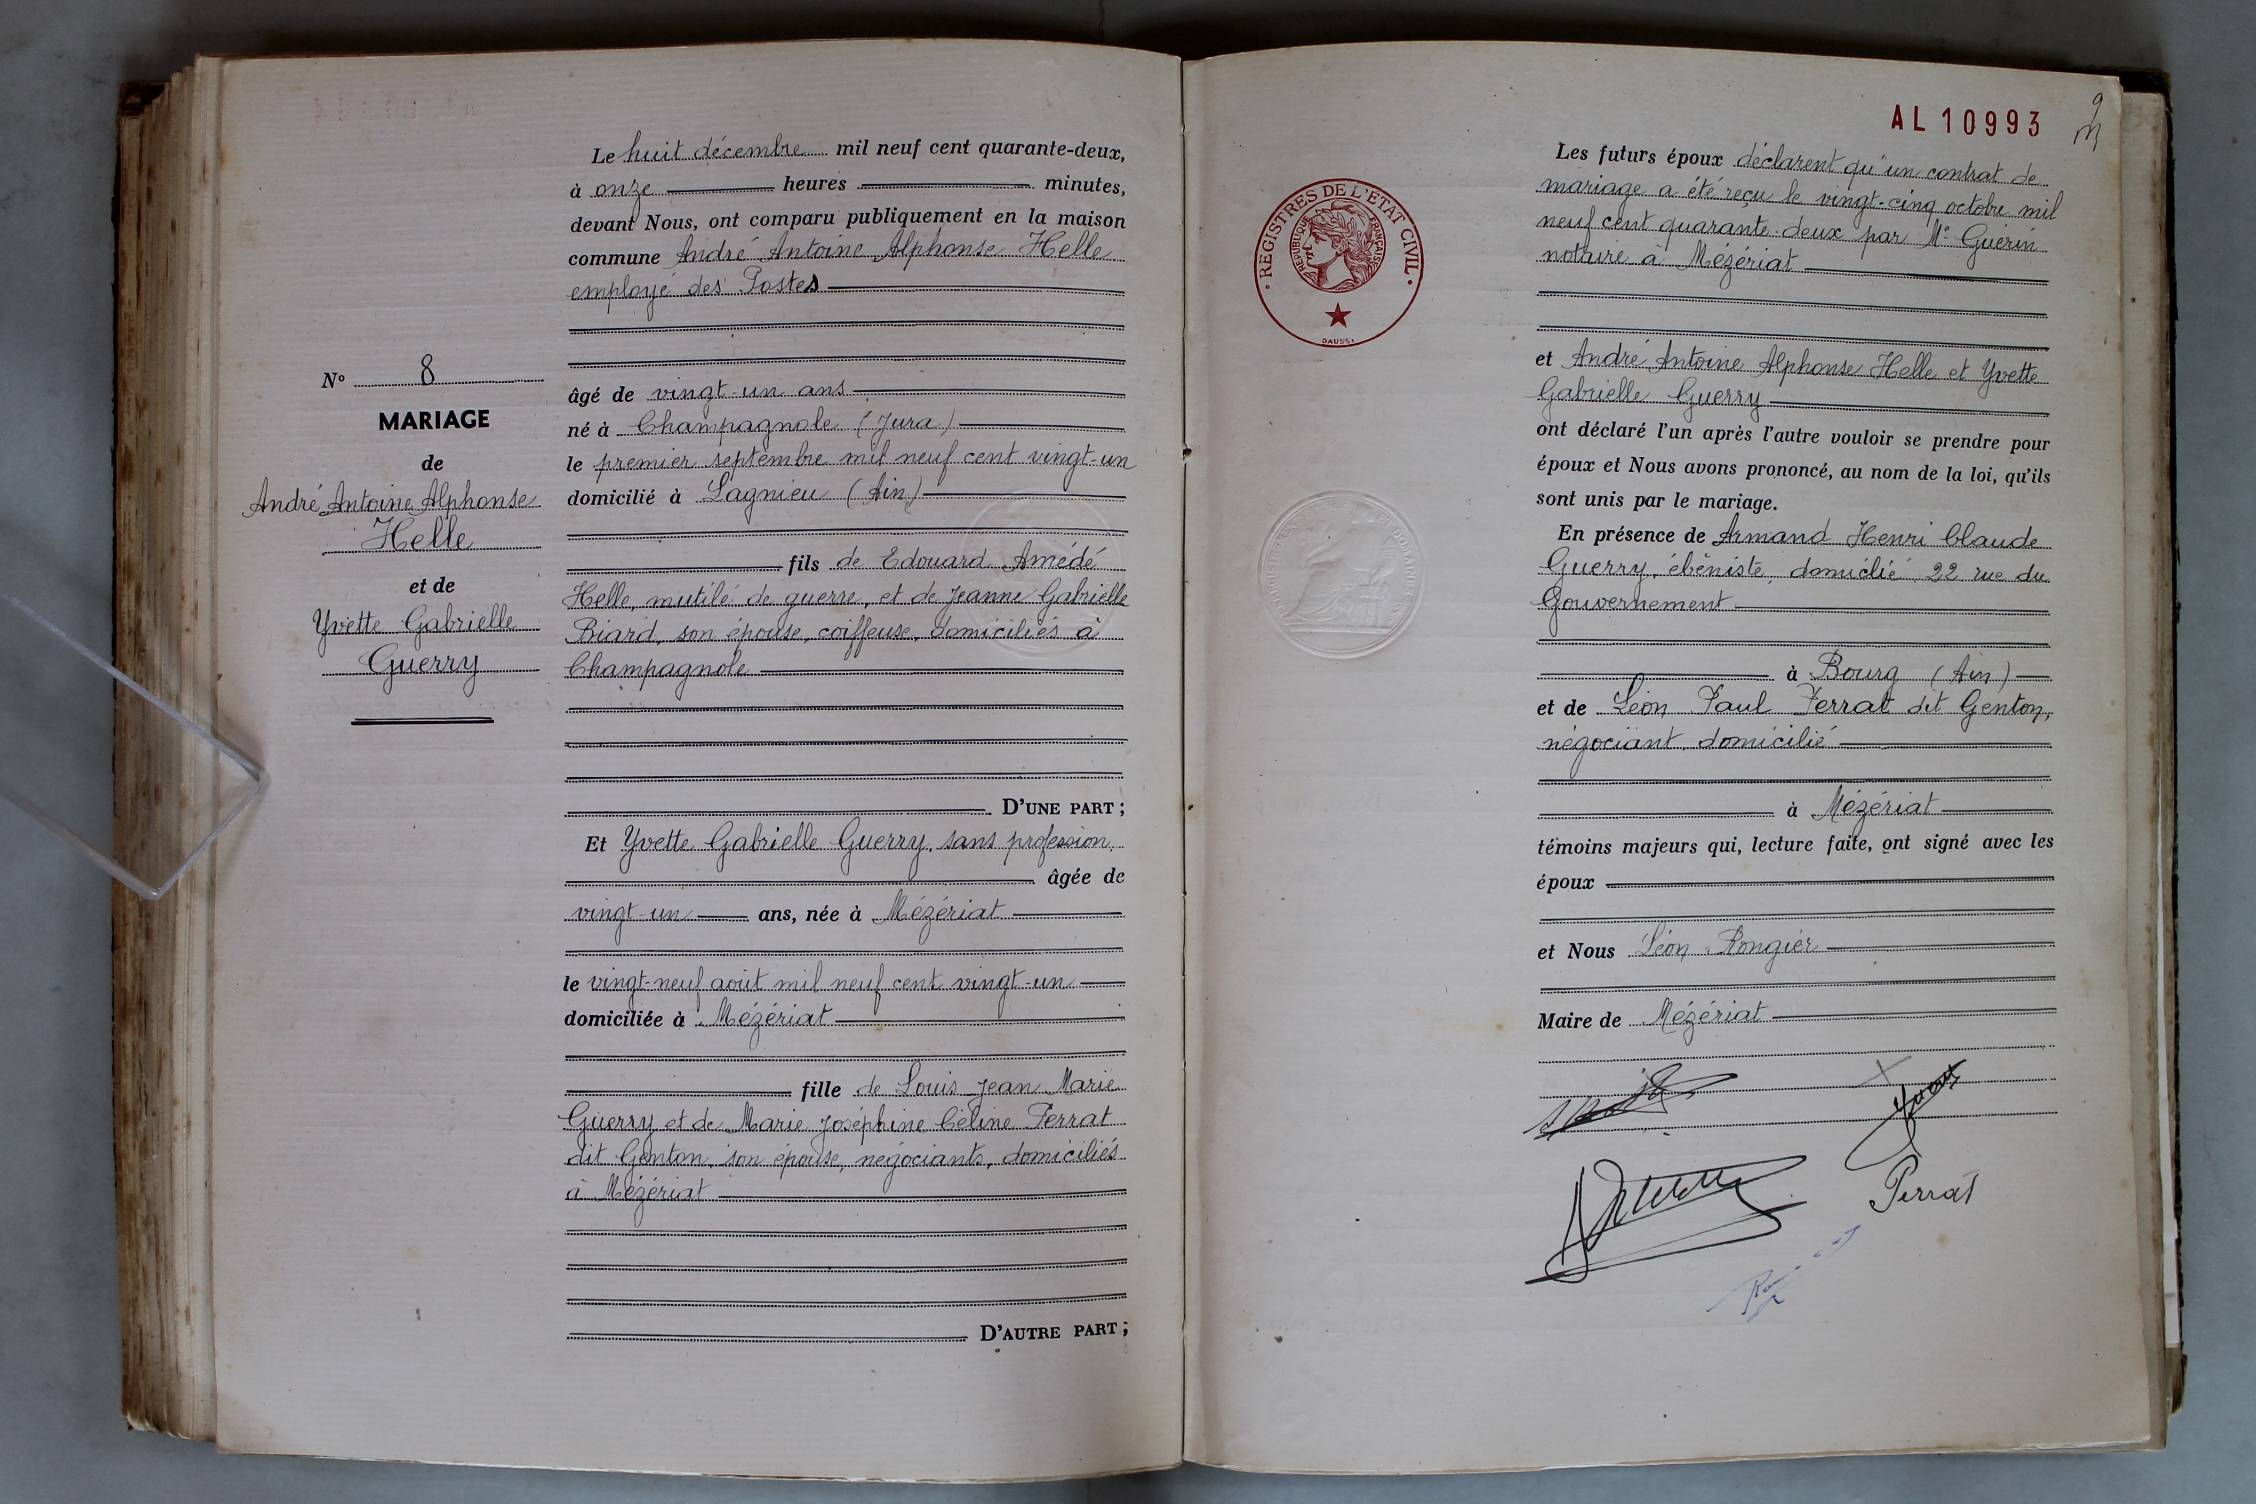 Le huit décembre mil neuf cent quarante-deux,
à onze heures minutes,
devant Nous, ont comparu publiquement en la maison
commune André Antoine Alphonse Helle
employé des Postes
N° 8
MARIAGE
de
André Antoine Alphonse
Helle
et de
Yvette Gabrielle
Guerry
âgé de vingt-un ans
né à Champagnole (Jura)
le premier septembre mil neuf cent vingt-un
domicilié à Lagnieu (Ain)
fils de Edouard Amédé
Helle, mutilé de guerre, et de Jeanne Gabrielle
Biard, son épouse, coiffeuse, domiciliés à
Champagnole
D'UNE PART;
Et Yvette Gabrielle Guerry, sans profession,
âgée de
vingt-un ans, née à Mézériat
le vingt-neuf août mil neuf cent vingt-un
domiciliée à Mézériat
fille de Louis Jean Marie
Guerry et de Marie Joséphine Céline Perrat
dit Genton, son épouse, négociants, domiciliés
à Mézériat
D'AUTRE PART;
AL 10993
9
REGISTRES DE L'ÉTAT CIVIL
RÉPUBLIQUE FRANÇAISE
Les futurs époux déclarent qu'un contrat de
mariage a été reçu le vingt-cinq octobre mil
neuf cent quarante-deux par Me Guérin
notaire à Mézériat
et André Antoine Alphonse Helle et Yvette
Gabrielle Guerry
ont déclaré l'un après l'autre vouloir se prendre pour
époux et Nous avons prononcé, au nom de la loi, qu'ils
sont unis par le mariage.
En présence de Armand Henri Claude
Guerry, ébéniste, domicilié 22 rue du
Gouvernement
à Bourg (Ain)
et de Léon Paul Perrat dit Genton,
négociant, domicilié
à Mézériat
témoins majeurs qui, lecture faite, ont signé avec les
époux
et Nous Léon Rongier
Maire de Mézériat
Perrat